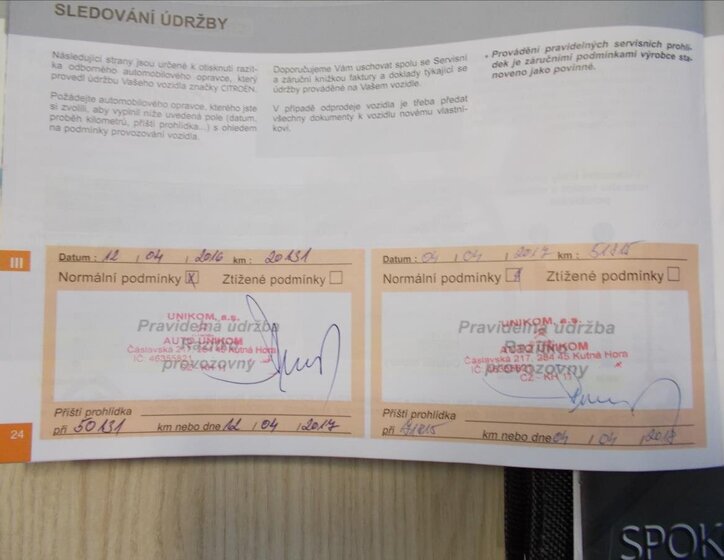 SLEDOVÁNÍ ÚDRŽBY
Následující strany jsou určené k otisknutí razít-
ka odborného automobilového opravce, který
provedl údržbu Vašeho vozidla značky CITROËN.
Požádejte automobilového opravce, kterého jste
si zvolili, aby vyplnil níže uvedená pole (datum,
proběh kilometrů, příští prohlídka...) s ohledem
na podmínky provozování vozidla.
Doporučujeme Vám uschovat spolu se Servisní
a záruční knížkou faktury a doklady týkající se
údržby prováděné na Vašem vozidle.
V případě odprodeje vozidla je třeba předat
všechny dokumenty k vozidlu novému vlastní-
kovi.
* Provádění pravidelných servisních prohlí-
dek je záručními podmínkami výrobce sta-
noveno jako povinné.
III
Datum : 12 , 04 , 2016 km : 20131
Normální podmínky X Ztížené podmínky
UNIKOM, a.s.
Pravidelná údržba
AUTO UNIKOM
Razítko
Čáslavská 217, 284 45 Kutná Hora
IČ 46355821
provozovny
CZ - KH 11
Příští prohlídka
při 50131 km nebo dne 12 , 04 , 2017
Datum : 04 , 04 , 2017 km : 51815
Normální podmínky Ztížené podmínky
UNIKOM, a.s.
Pravidelná údržba
AUTO UNIKOM
Razítko
Čáslavská 217, 284 45 Kutná Hora
provozovny
CZ - KH 11
Příští prohlídka
při km nebo dne 04 , 04 , 2018
24
SPOK